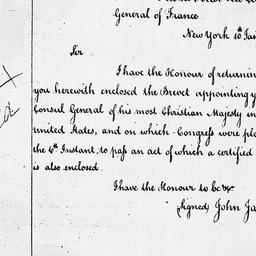 General of France
New York 10th Jan
Sir
I have the Honour of returnin
you herewith enclosed the Brevet appointing y
Consul General of his most Christian Majesty in
united States, and on which Congress were ple
the 4th Instant, to pass an act of which a certified
is also enclosed.
I have the Honour to be &c
(signed) John Ja